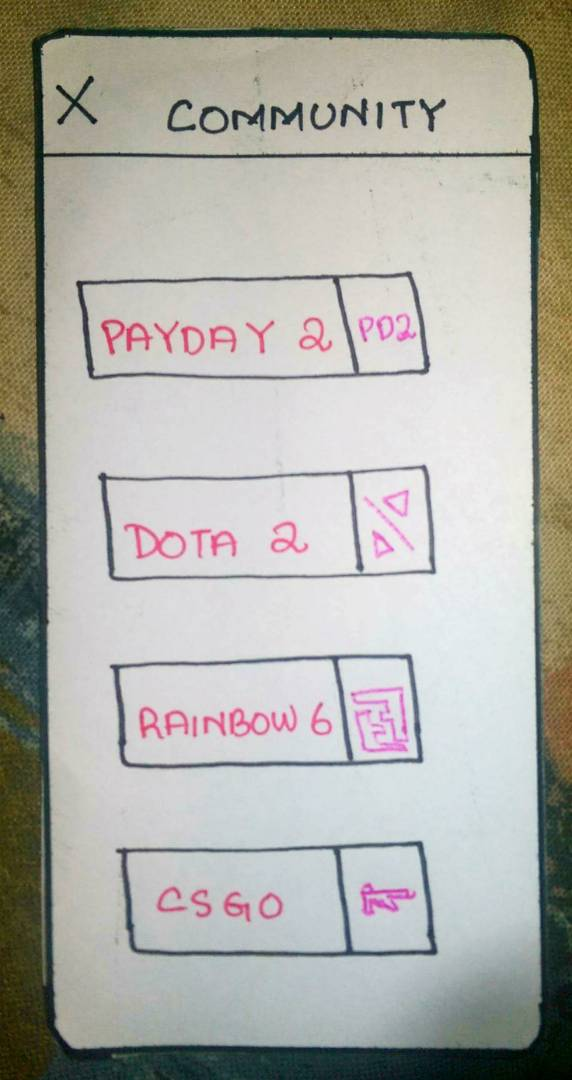 X COMMUNITY
PAYDAY 2 PD2
DOTA 2
RAINBOW 6
CSGO